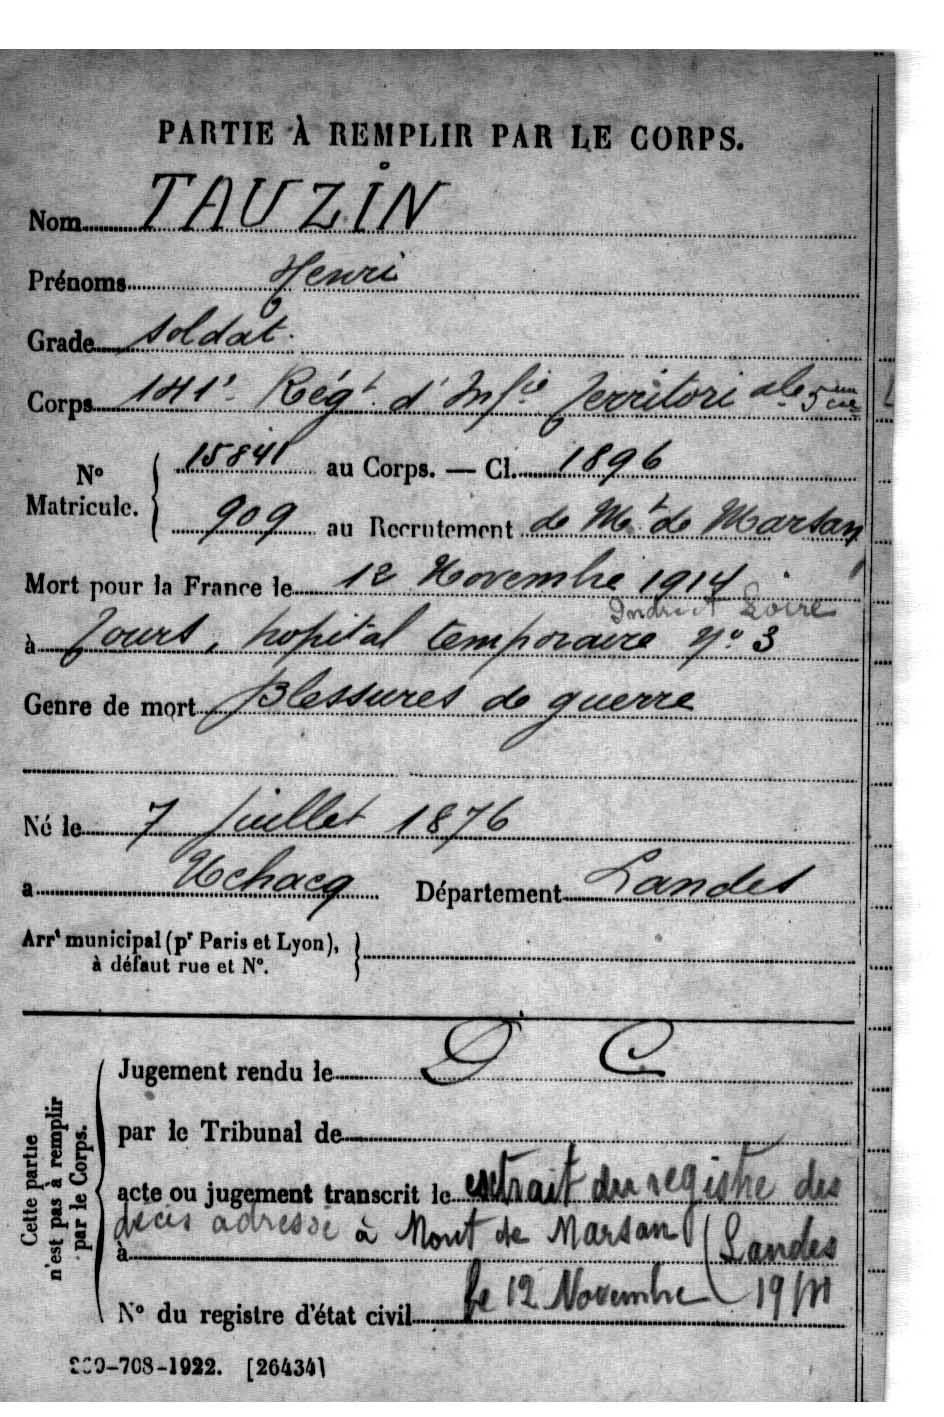 PARTIE À REMPLIR PAR LE CORPS.
Nom TAUZIN
Prénoms Henri
Grade soldat.
Corps 141e Régt d'Infie Territoriale 5me Cie
No Matricule. 15841 au Corps. — Cl. 1896
909 au Recrutement de Mt de Marsan
Mort pour la France le 12 Novembre 1914
Indre et Loire
à Tours, hopital temporaire No 3
Genre de mort Blessures de guerre
Né le 7 Juillet 1876
a Uchacq Département Landes
Arrt municipal (pr Paris et Lyon), à défaut rue et No.
Cette partie n'est pas à remplir par le Corps.
Jugement rendu le D C
par le Tribunal de
acte ou jugement transcrit le extrait du registre des
décès adressé à Mont de Marsan (Landes
à
le 12 Novembre
No du registre d'état civil
708-1922. [26434]